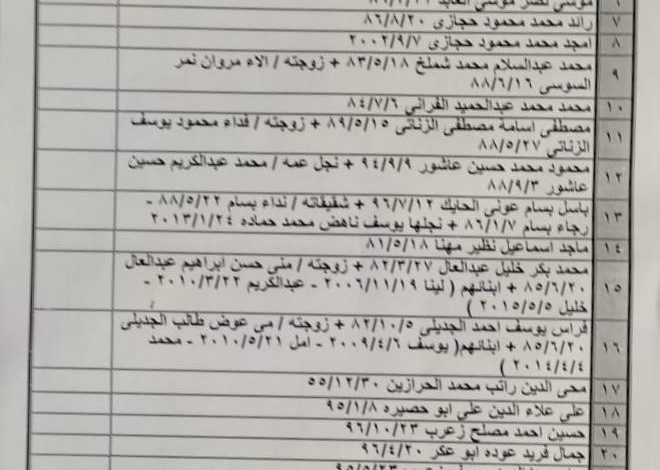 موسى نصر موسى العابد
٧ رائد محمد محمود حجازى ٨٦/٨/٢٠
٨ امجد محمد محمود حجازى ٢٠٠٢/٩/٧
٩ محمد عبدالسلام محمد شملخ ٨٣/٥/١٨ + زوجته / الاء مروان نمر
السوسى ٨٨/٦/١٦
١٠ محمد محمد عبدالحميد الفرانى ٨٤/٧/٦
١١ مصطفى اسامة مصطفى الزناتى ٨٩/٥/١٥ + زوجته / فداء محمود يوسف
الزناتى ٨٨/٥/٢٧
١٢ محمود محمد حسين عاشور ٩٤/٩/٩ + نجل عمه / محمد عبدالكريم حسين
عاشور ٨٨/٩/٣
١٣ باسل بسام عونى الحايك ٩٦/٧/١٢ + شقيقاته / نداء بسام ٨٨/٥/٢٢ -
رجاء بسام ٨٦/١/٧ + نجلها يوسف ناهض محمد حماده ٢٠١٣/١/٢٤
١٤ ماجد اسماعيل نظير مهنا ٨١/٥/١٨
١٥ محمد بكر خليل عبدالعال ٨٢/٣/٢٧ + زوجته / منى حسن ابراهيم عبدالعال
٨٥/٦/٢٠ + ابنائهم ( لينا ٢٠٠٦/١١/١٩ - عبدالكريم ٢٠١٠/٣/٢٢ -
خليل ٢٠١٥/٥/٥ )
١٦ فراس يوسف احمد الجديلى ٨٢/١٠/٥ + زوجته / مى عوض طالب الجديلى
٨٥/٦/٢٠ + ابنائهم( يوسف ٢٠٠٩/٤/٦ - امل ٢٠١٠/٥/٢١ - محمد
٢٠١٤/٤/٤ )
١٧ محى الدين راتب محمد الحرازين ٥٥/١٢/٣٠
١٨ على علاء الدين على ابو حصيره ٩٥/١/٨
١٩ حسين احمد مصلح زعرب ٩٦/١٠/٢٣
٢٠ جمال فريد عوده ابو عكر ٩٦/٤/٢٠
٩٥/٥/٢٣